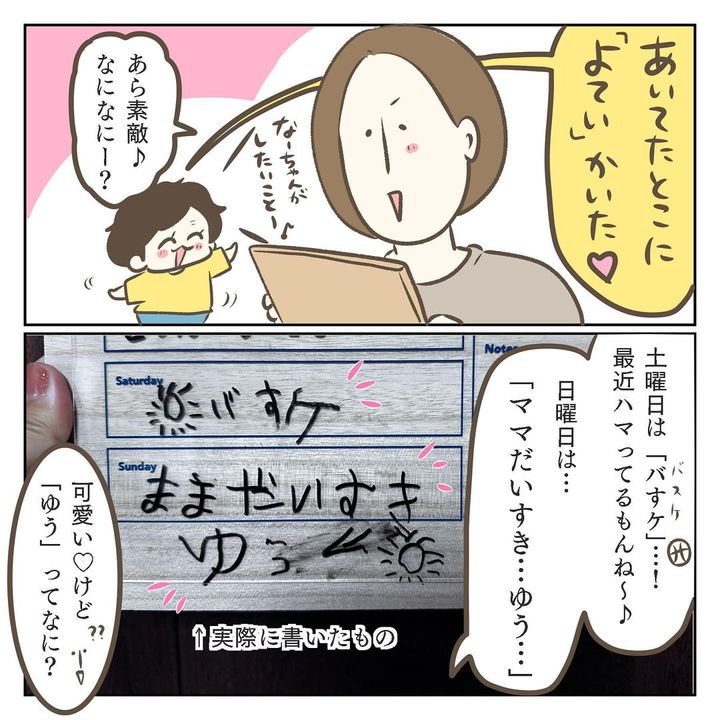 あいてたとこに
「よてい」かいた♡
あら素敵♪
なになにー？
なーちゃんが
したいことー♪
土曜日は「バすケ」…！
バスケ
最近ハマってるもんね〜♪
日曜日は…
「ママだいすき…ゆう…」
Notes
Saturday
バすケ
Sunday
ままだいすき
ゆう
↑実際に書いたもの
可愛い♡けど
「ゆう」ってなに？
??